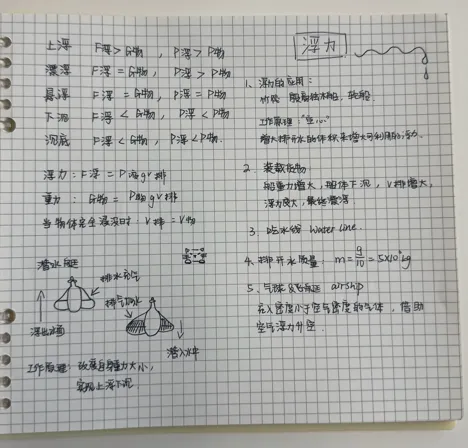 上浮 F浮 > G物 , ρ浮 > ρ物
漂浮 F浮 = G物 , ρ浮 > ρ物
悬浮 F浮 = G物 , ρ浮 = ρ物
下沉 F浮 < G物 , ρ浮 < ρ物
沉底 F浮 < G物 , ρ浮 < ρ物.
浮力: F浮 = ρ液gV排
重力: G物 = ρ物gV排
当物体完全浸没时: V排 = V物
潜水艇
排水充气
排气加水
浮出水面
潜入水中
工作原理: 改变自身重力大小,
实现上浮下沉.
浮力
1. 浮力的应用:
轮船
工作原理: "空心"
增大排开水的体积来增大可利用的浮力.
2. 装载货物
船重力增大, 船体下沉, V排增大,
浮力变大, 最终漂浮
3. 吃水线 Water Line.
4. 排开水质量: m = =5×10 kg
5. 气球及飞艇 airship
充入密度小于空气密度的气体, 借助
空气浮力升空.